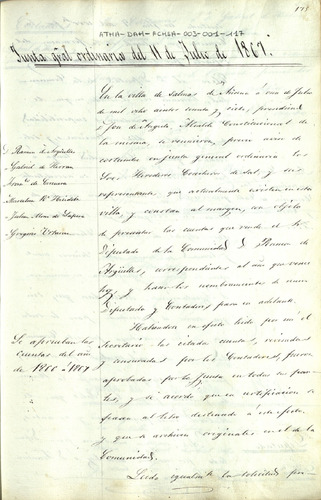 178
ATHA-DAH-FCHSA-003-001-117
Junta gral ordinaria del 11 de Julio de 1867.
En la villa de Salinas de Añana a once de Julio
de mil ocho cientos sesenta y siete, presididos
por Don de Angulo, Alcalde Constitucional de
la misma, se reunieron, previo aviso de
costumbre en junta general ordinaria los
Sres. Herederos Cosecheros de Sal, y sus
representantes que actualmente existen en esta
villa, y constan al margen, con objeto
de presentar las cuentas que rinde el
Diputado de la Comunidad D. Ramon de
Argüelles, correspondientes al año que vence
hoy, y hacer los nombramientos de nuevo
Diputado y Contadores para en adelante.
D. Ramon de Argüelles
Gabriel de Herran
de Guinea
Gregorio Urbina
Habiendo en efecto leido por mí el
Secretario las citadas cuentas, revisadas
y censuradas por los Contadores, fueron
aprobadas por la Junta en todas sus par-
tes, y se acordó que su notificacion se
al libro destinado a este efecto,
y que se archiven originales en el de la
Comunidad.
Se aprueban las
cuentas del año
de 1866 a 1867
Leida igualmte la solicitud pre-